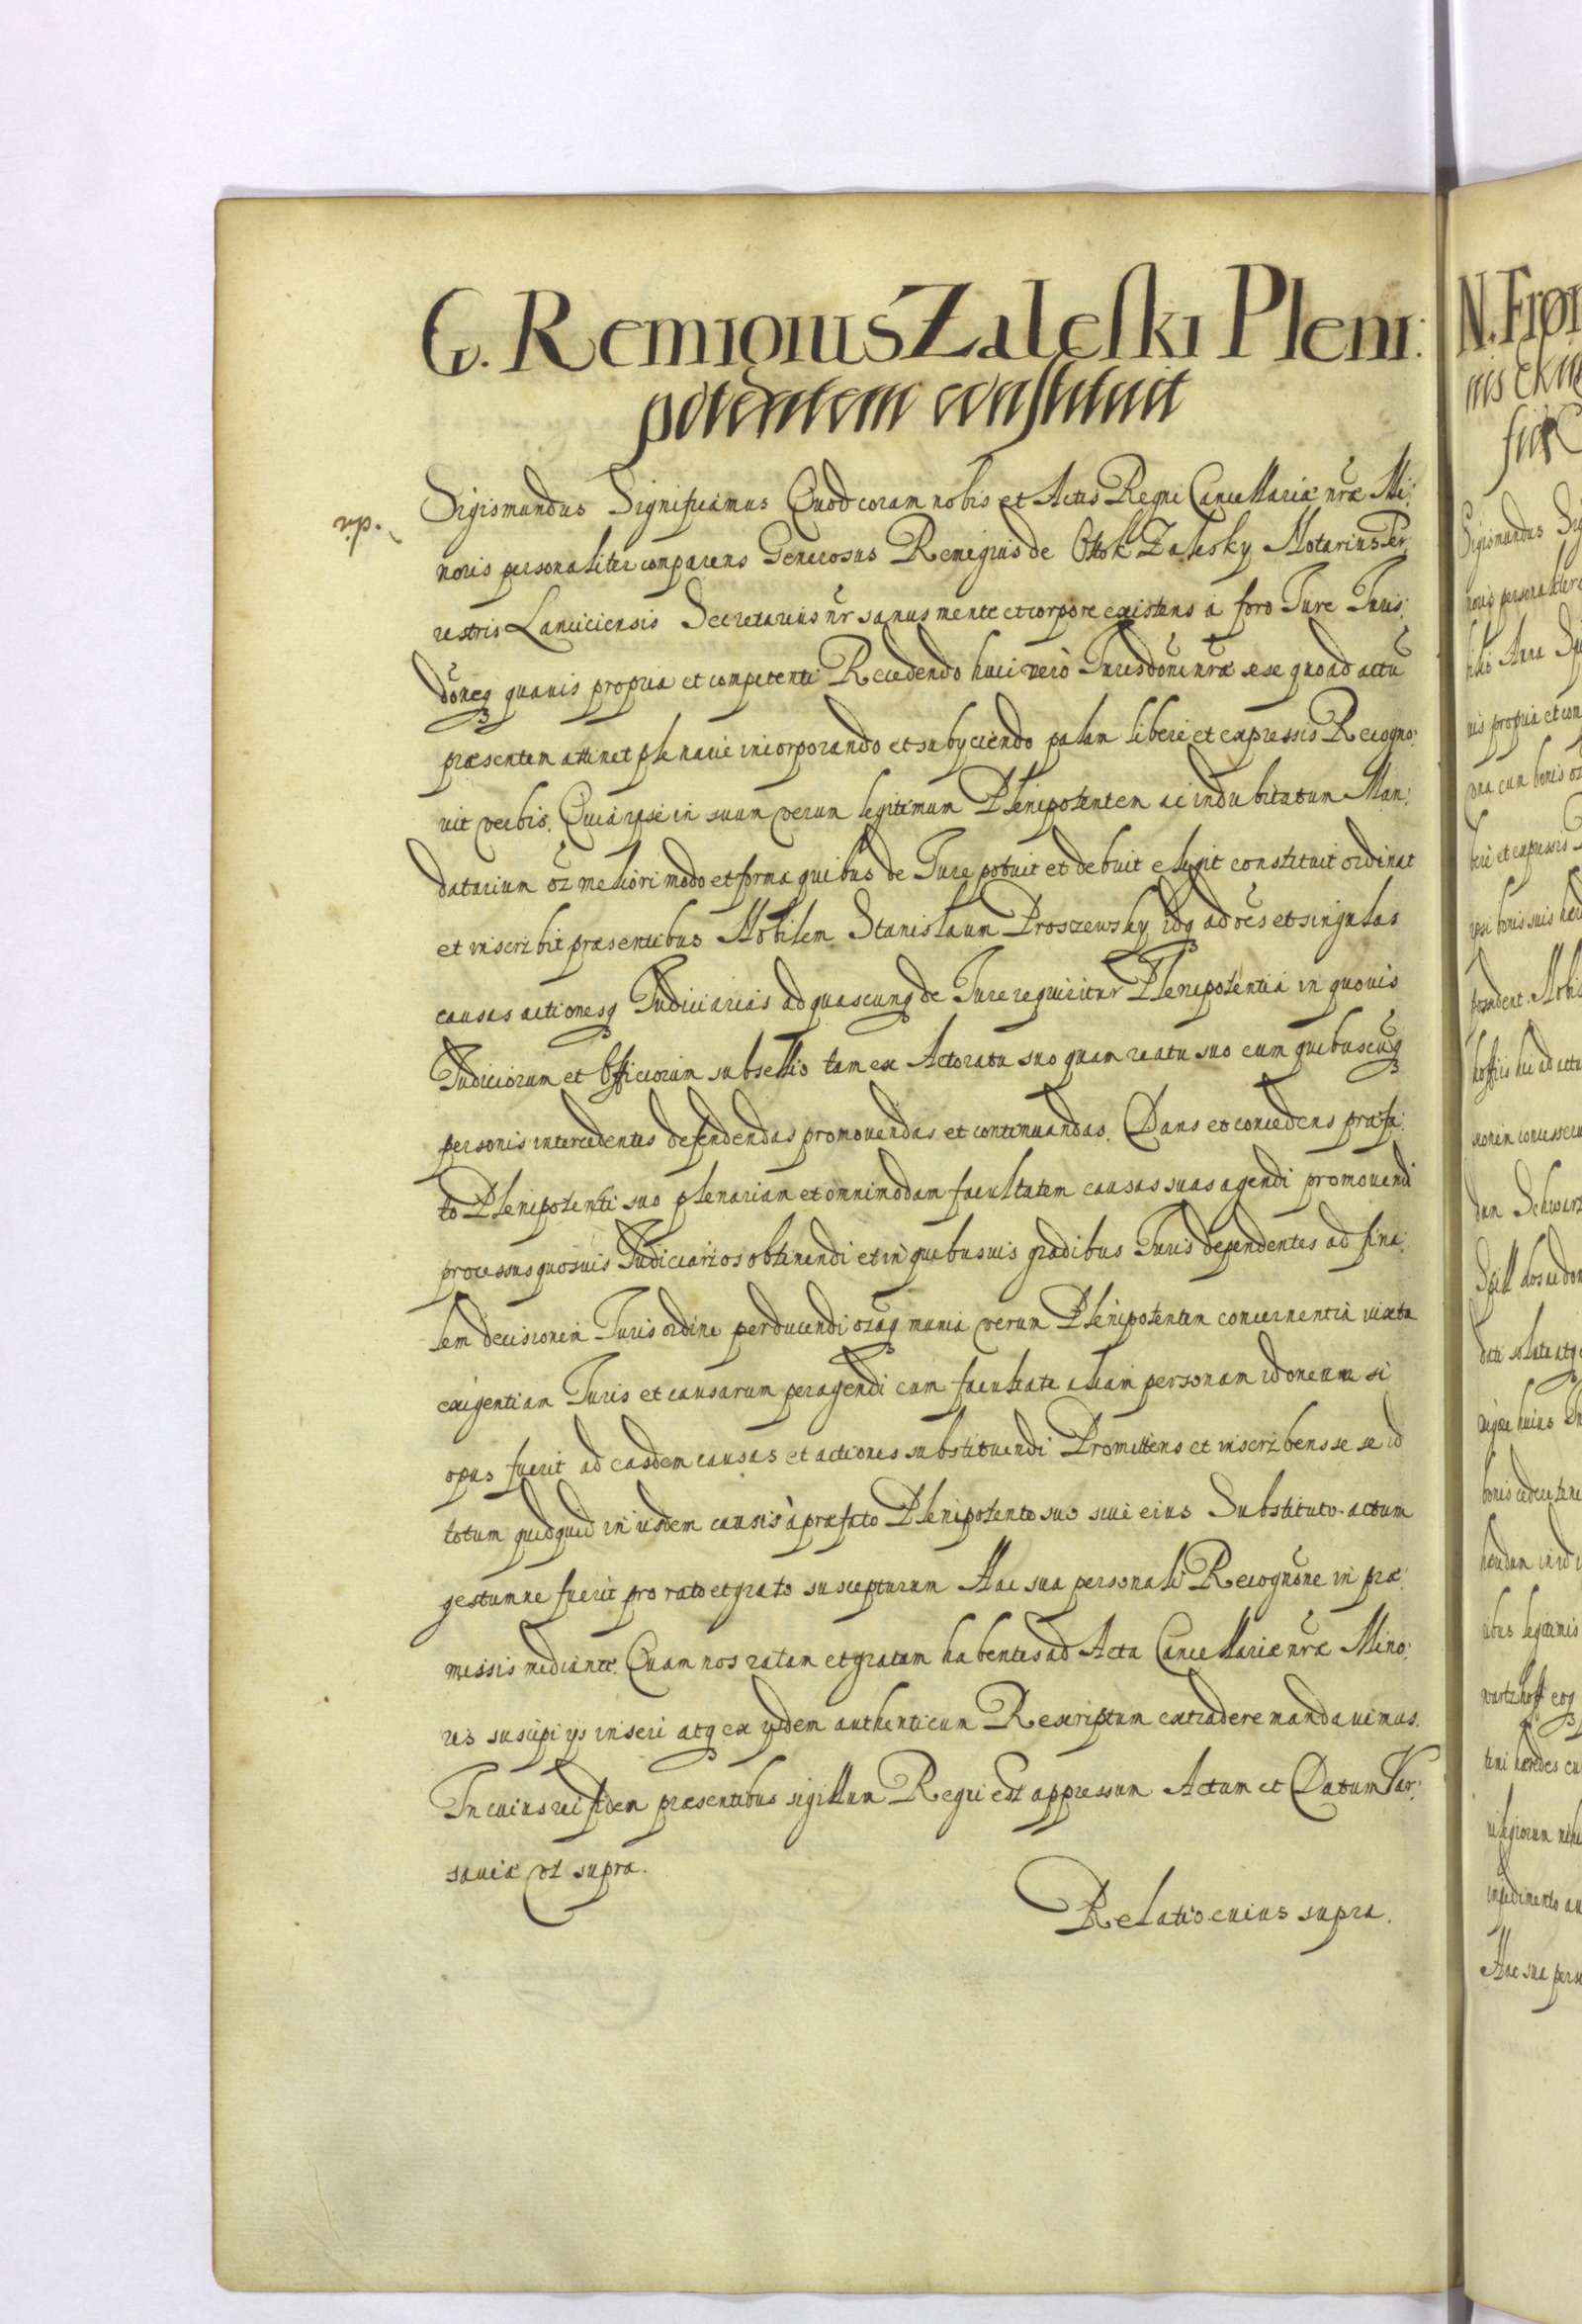 G. Remigius Zaleski Pleni:
potentem constituit
vp.
Sigismundus Significamus Quod coram nobis et Actis Regni Cancellariæ nr̃æ Mi:
noris personaliter comparens Generosus Remigius de Ottok Zalesky Notarius Ter
restris Lanciciensis Secretarius nr̃ sanus mente et corpore existens à foro Jure Juris:
dõneq quavis propria et competenti Recedendo huic vero Jurisdõni nr̃æ sese quoad actũ
præsentem attinet plenarie incorporando et subyciendo palam libere et expressis Recogno:
vit verbis. Quia ipse in suum verum legitimum Plenipotentem ac indubitatum Man:
datarium oĩ meliori modo et forma quibus de Jure potuit et debuit elegit constituit ordinat
et inscribit præsentibus Nobilem Stanislaum Proszewsky idq ad oẽs et singulas
causas actionesq Judiciarias ad quascunq de Jure requiritur Plenipotentia in quovis
Judiciorum et Officiorum subsellio tam ex Actoratu suo quam reatu suo cum quibuscũq
personis intercedentes defendendas promovendas et continuandas. Dans et concedens præfa:
to Plenipotenti suo plenariam et omnimodam facultatem causas suas agendi promovendi
processus quosvis Judiciarios obtinendi et in quibusvis gradibus Juris dependentes ad fina:
lem decisionem Juris ordine perducendi oĩaq munia verum Plenipotentem concernentia iuxta
exigentiam Juris et causarum peragendi cum facultate aliam personam idoneam si
opus fuerit ad easdem causas et actiones substituendi Promittens et inscribens se se id
totum quidquid in iisdem causis à præfato Plenipotente suo sive eius Substituto actum
gestumve fuerit pro rato et grato suscepturum Hac sua personali Recognõne in præ:
missis mediante. Quam nos ratam et gratam habentes ad Acta Cancellariæ nr̃æ Mino:
ris suscipi ijs inseri atq ex ijsdem authenticum Rescriptum extradere mandavimus.
In cuius rei fidem præsentibus sigillum Regni est appressum Actum et Datum Var:
saviæ vt supra.
Relatio cuius supra.